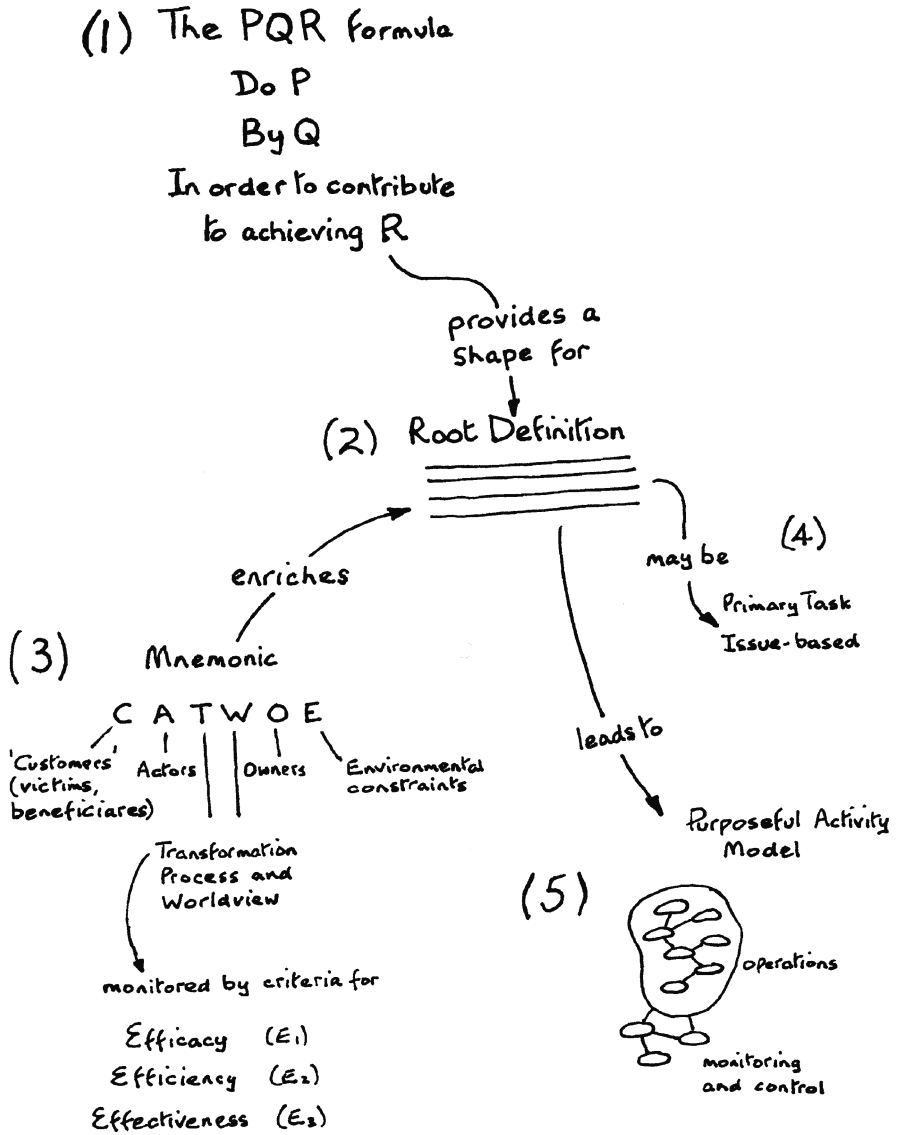 (1) The PQR formula
Do P
By Q
In order to contribute
to achieving R
provides a
shape for
(2) Root Definition
(4)
may be
Primary Task
Issue-based
enriches
(3) Mnemonic
C A T W O E
'Customers'
(victims,
beneficiares)
Actors
Owners
Environmental
constraints
Transformation
Process and
Worldview
monitored by criteria for
Efficacy (E₁)
Efficiency (E₂)
Effectiveness (E₃)
leads to
Purposeful Activity
Model
(5)
operations
monitoring
and control